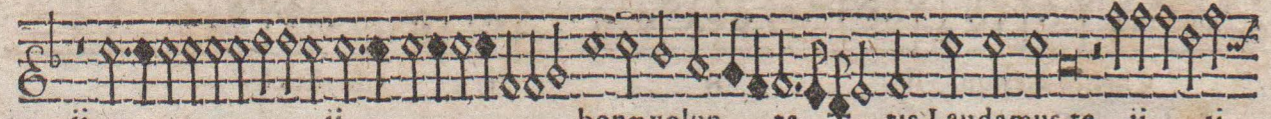 ij ij bonę volun ta tis Laudamus te ij ij